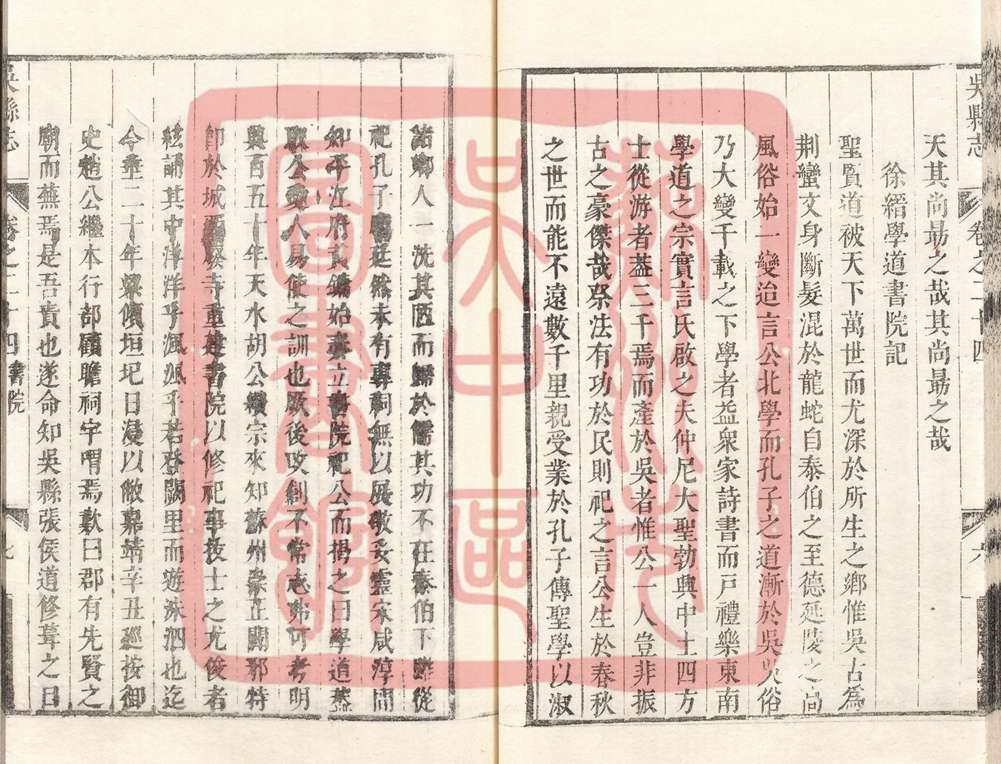 吳縣志
卷之二十四
六
天其尚勗之哉其尚勗之哉
徐縉學道書院記
聖賢道被天下萬世而尤深於所生之鄉惟吳古為
荆蠻文身斷髮混於龍蛇自泰伯之至德延陵之高
風俗始一變迨言公北學而孔子之道漸於吳吳俗
乃大變千載之下學者益衆家詩書而戸禮樂東南
學道之宗實言氏啟之夫仲尼大聖勃興中土四方
士從游者葢三千焉而產於吳者惟公一人豈非振
古之豪傑哉祭法有功於民則祀之言公生於春秋
之世而能不遠數千里親受業於孔子傳聖學以淑
諸鄉人一洗其陋而歸於儒其功不在泰伯下雖從
祀孔子廟庭然未有專祠無以展敬妥靈宋咸淳間
知平江府黃鏞始奏立書院祀公而揭之曰學道葢
取公愛人易使之訓也厥後改創不常志弗可考明
興百五十年天水胡公纘宗來知蘇州崇正闢邪特
卽於城西廢寺重建書院以修祀事後士之尤俊者
絃誦其中洋洋乎渢渢乎若登闕里而遊洙泗也迄
今垂二十年棟傾垣圯日漫以敝嘉靖辛丑廵按御
史趙公繼本行部顧瞻祠宇喟焉歎曰郡有先賢之
廟而蕪焉是吾責也遂命知吳縣張侯道修葺之日
吳縣志
卷之二十四 書院
七
蘇州市
吳中區
圖書館